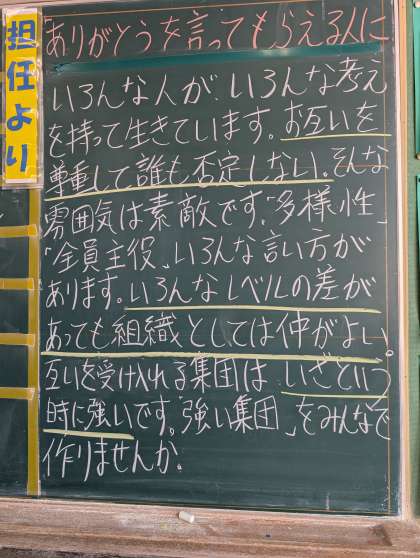 担任より
「ありがとうを言ってもらえる人に
いろんな人が、いろんな考え
を持って生きています。お互いを
尊重して誰も否定しない。そんな
雰囲気は素敵です。「多様性」
「全員主役」いろんな言い方が
あります。いろんなレベルの差が
あっても組織としては仲がよい。
互いを受け入れる集団は、いざという
時に強いです。「強い集団」をみんなで
作りませんか。